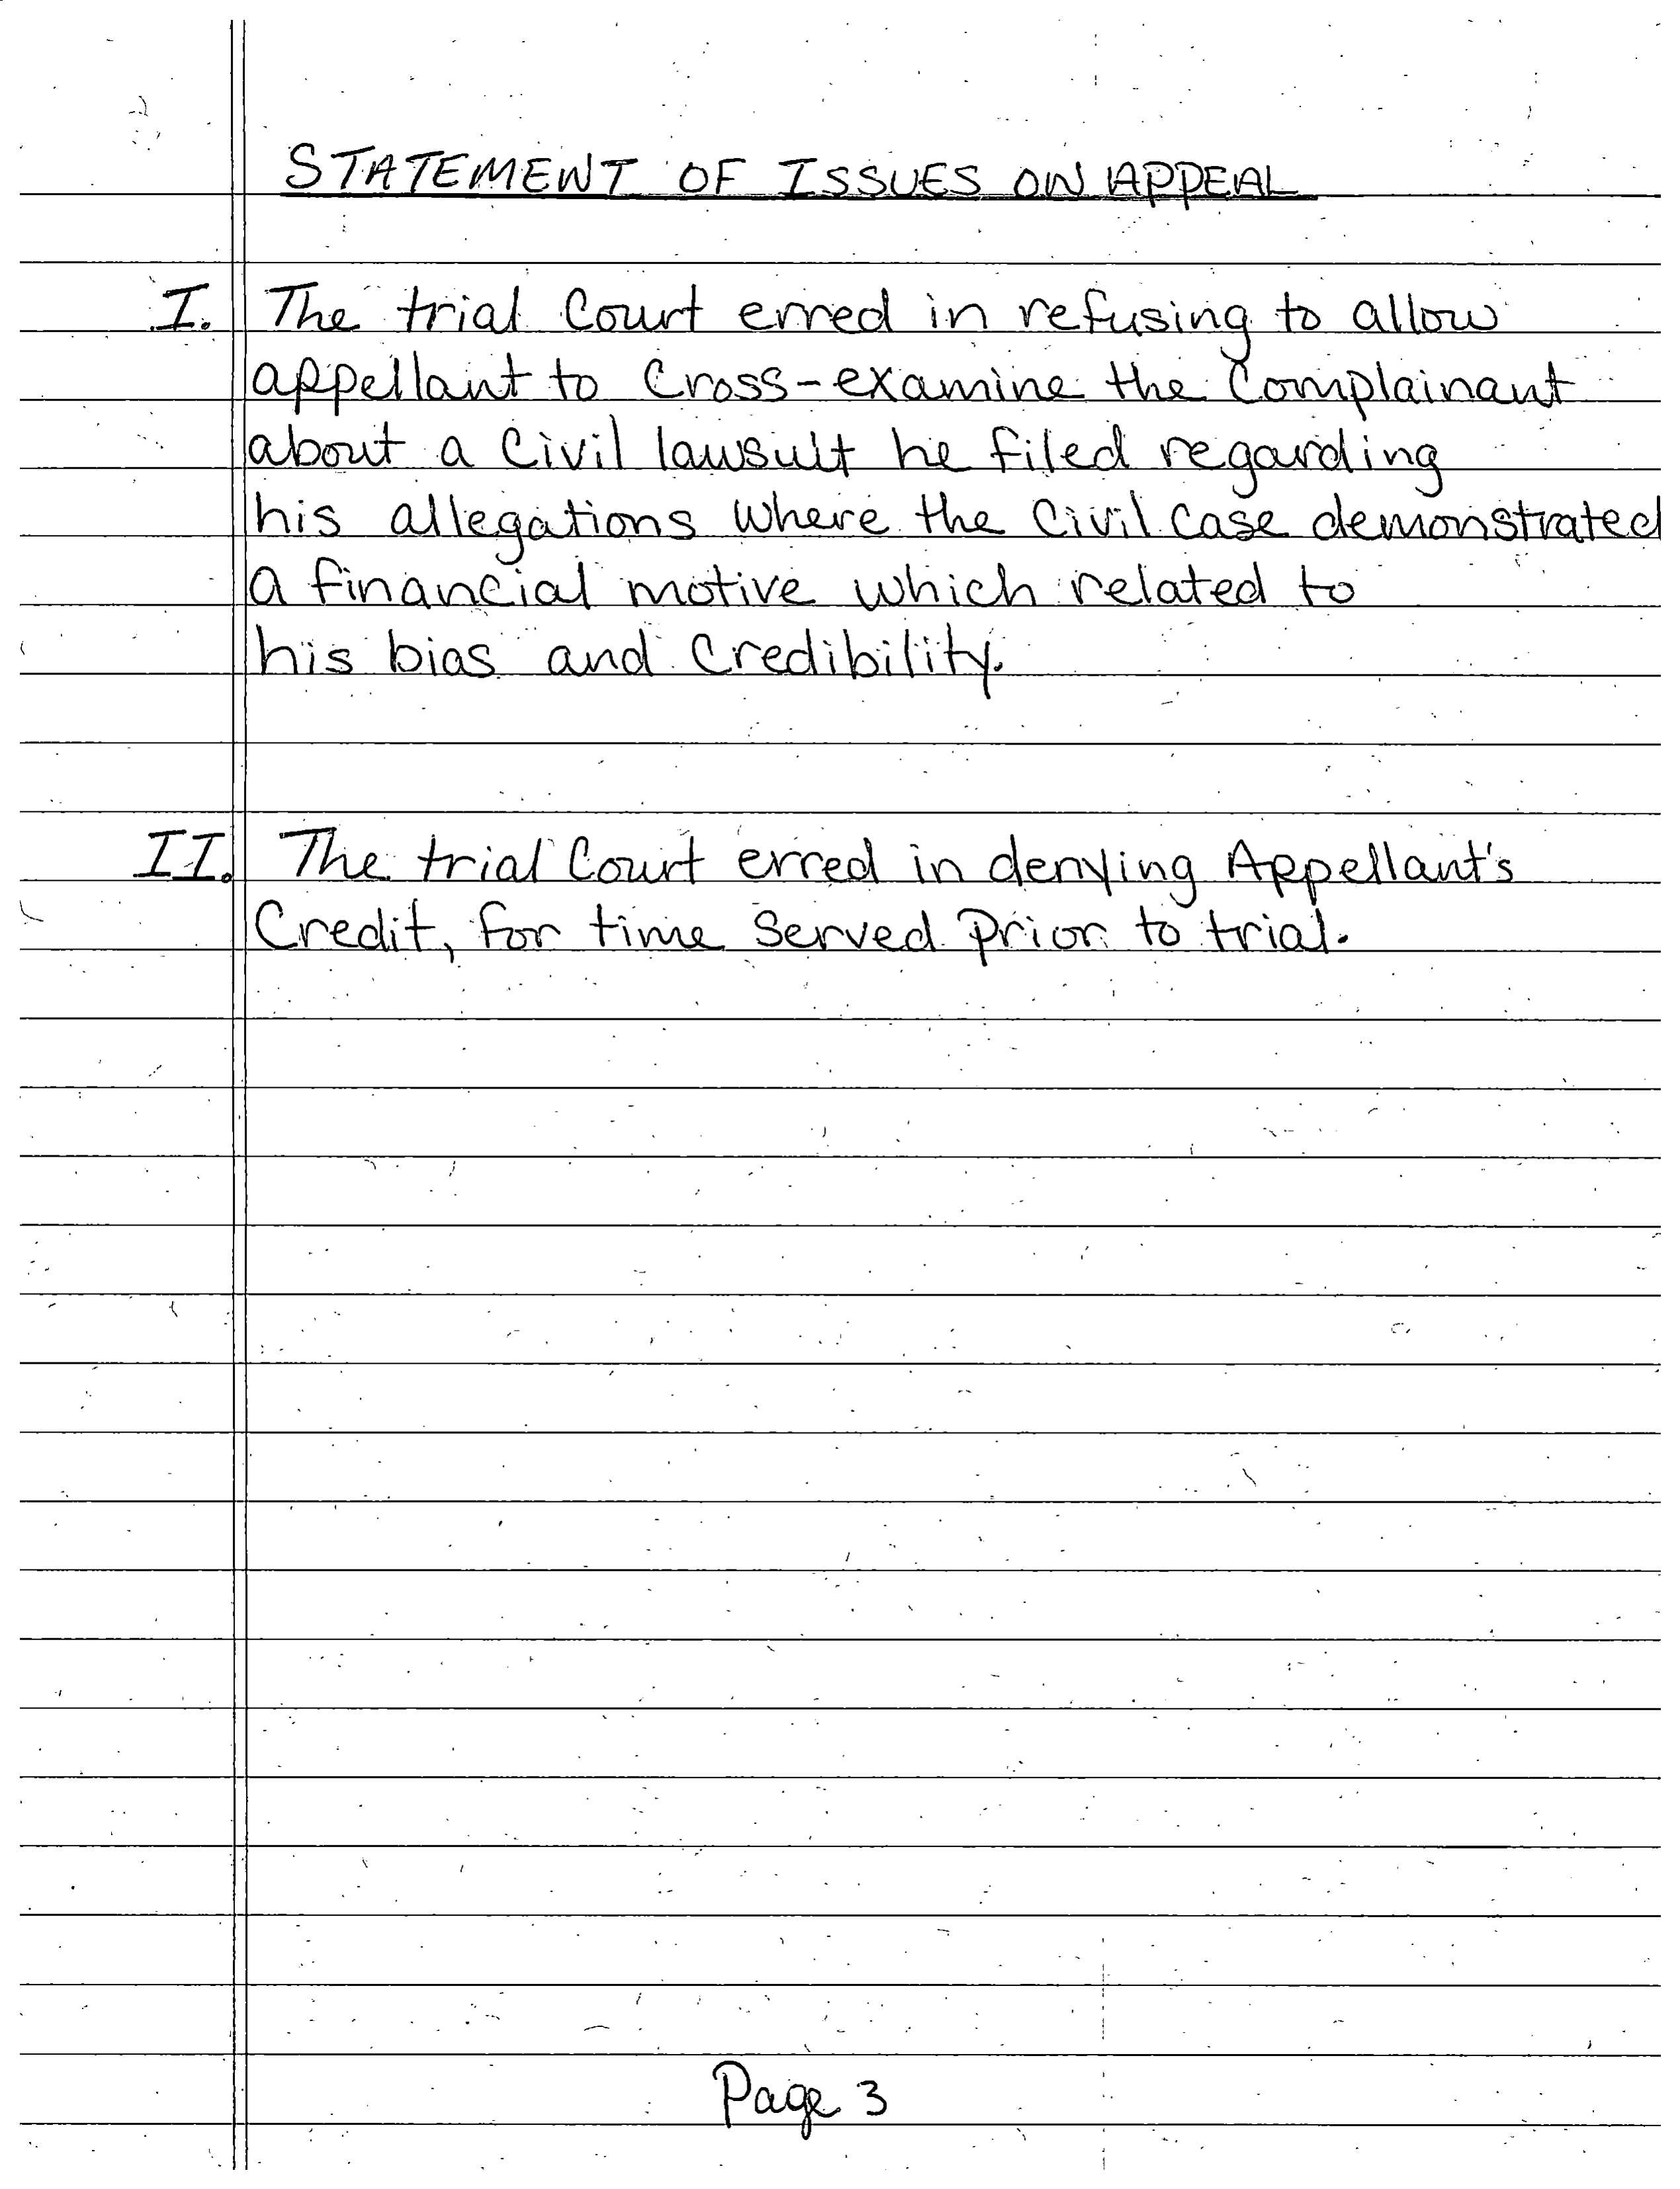 STATEMENT OF ISSUES ON APPEAL
I. The trial Court erred in refusing to allow
appellant to Cross-examine the Complainant
about a Civil lawsuit he filed regarding
his allegations where the Civil Case demonstrated
a financial motive which related to
his bias and Credibility.
II. The trial Court erred in denying Appellant's
Credit, for time Served Prior to trial.
Page 3